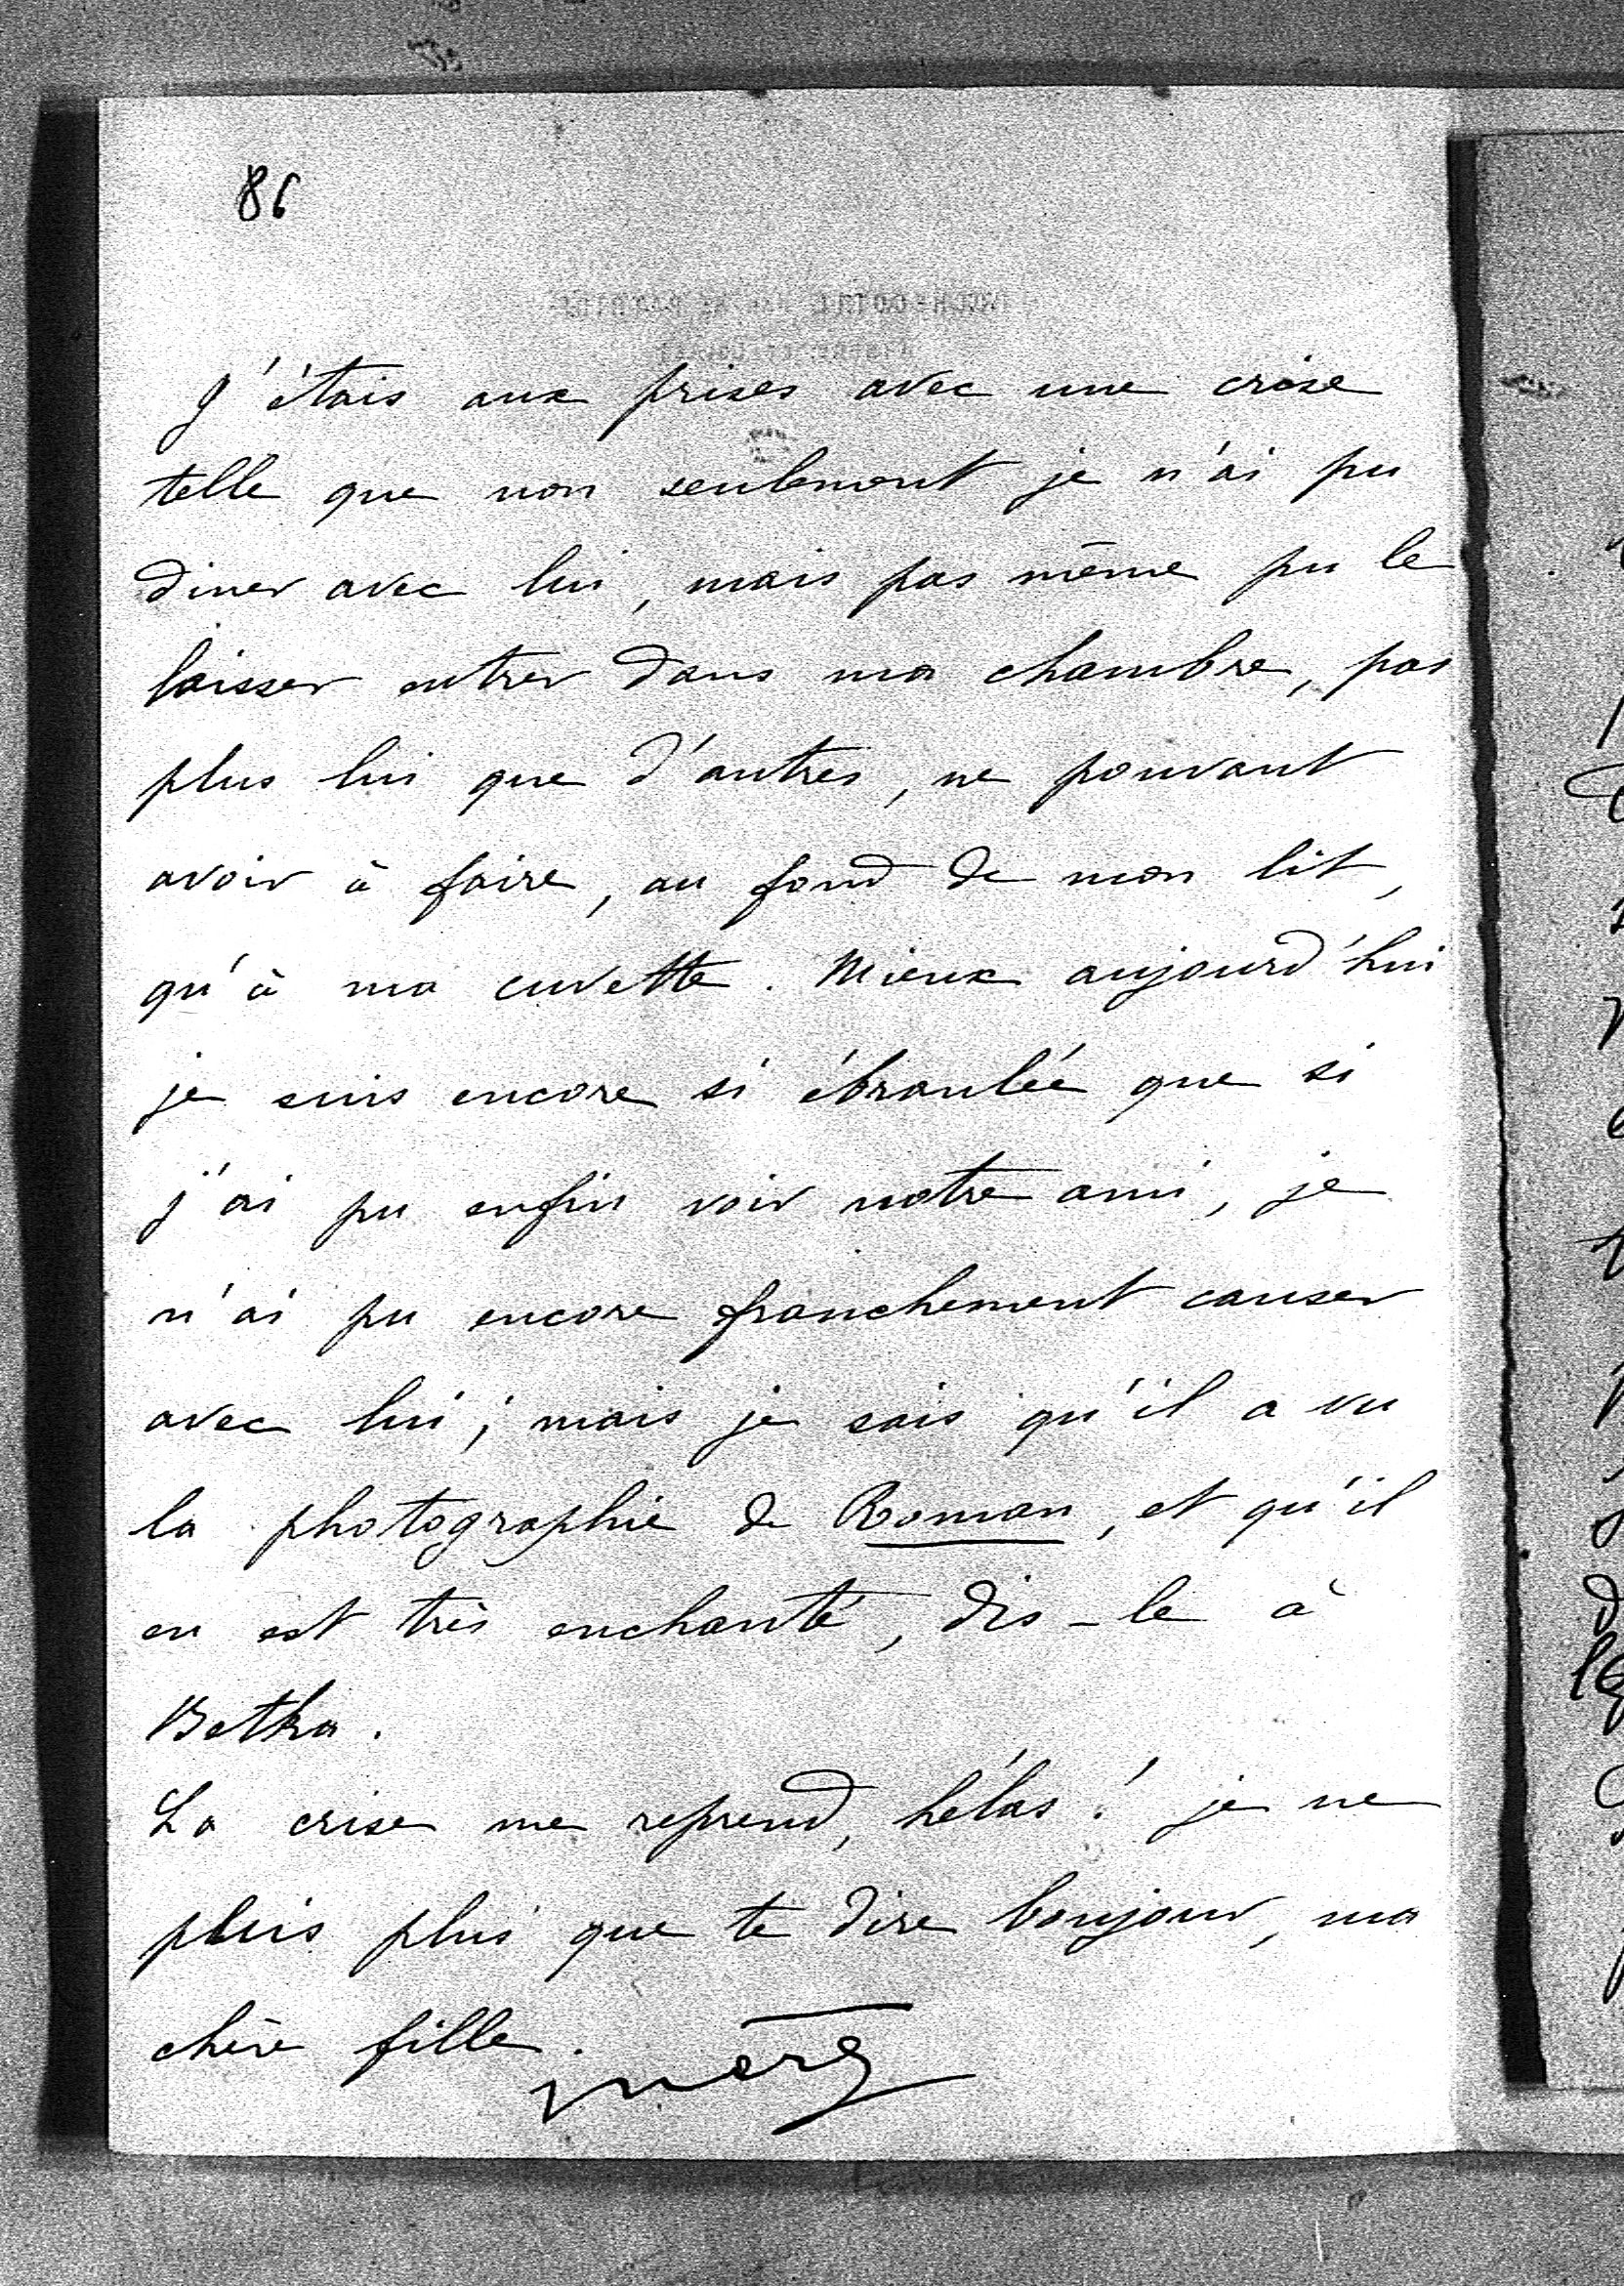 86
J'étais aux prises avec une crise
telle que non seulement je n'ai pu
diner avec lui, mais pas même pu le
laisser entrer dans ma chambre, pas
plus lui que d'autres, ne pouvant
avoir à faire, au fond de mon lit,
qu'à ma cuvette. Mieux aujourd'hui
je suis encore si ébranlée que si
j'ai pu enfin voir notre ami, je
n'ai pu encore franchement causer
avec lui; mais je sais qu'il a vu
la photographie de Roman, et qu'il
en est très enchanté, dis-le à
Betka.
La crise me reprend, hélas! je ne
puis plus que te dire bonjour, ma
chère fille.
mère